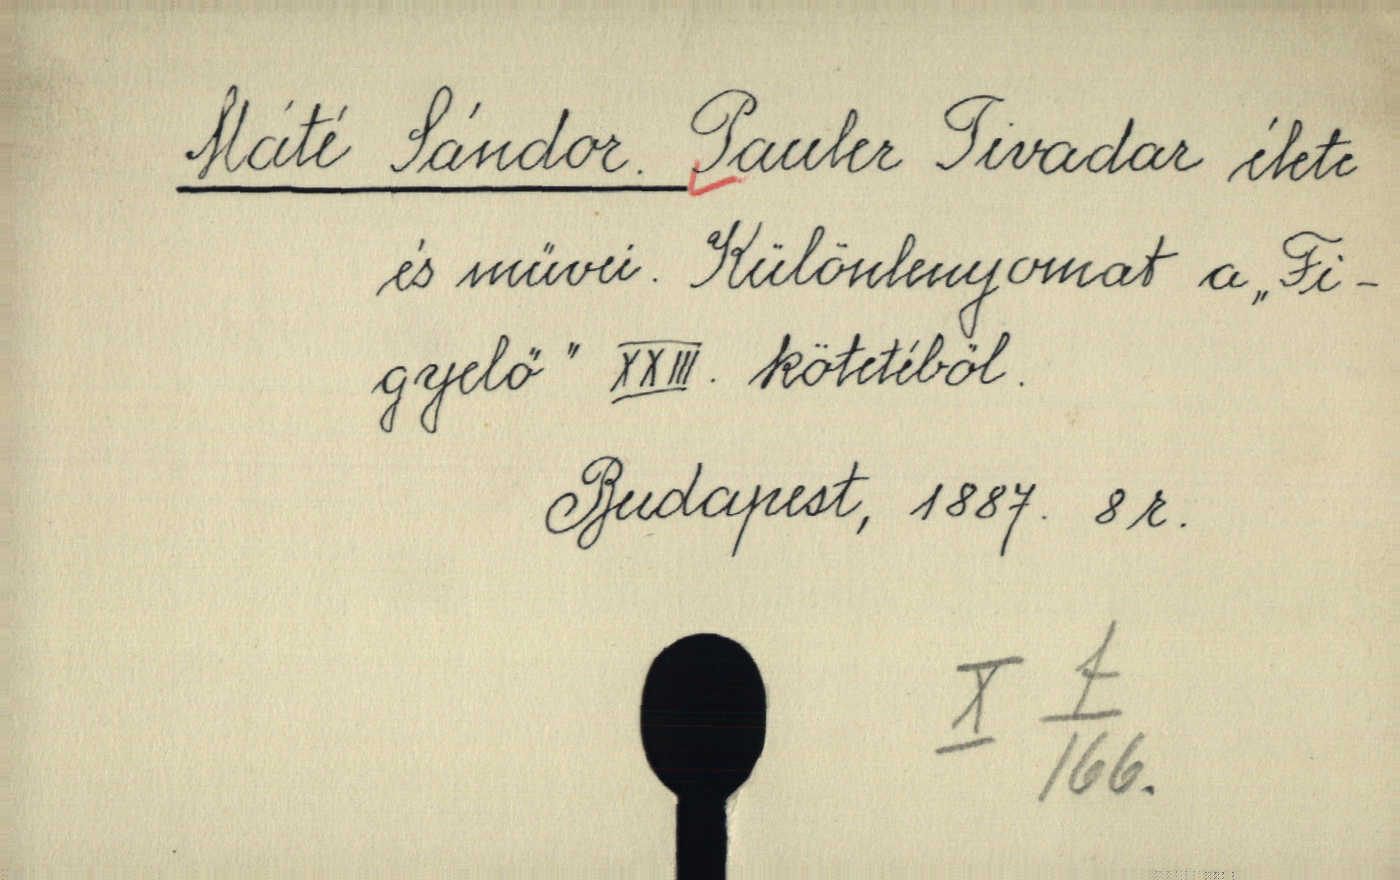 Máté Sándor. Pauler Tivadar élete
és művei. Különlenyomat a „Fi-
gyelő" XXIII. kötetéből.
Budapest, 1887. 8 r.
X
166.